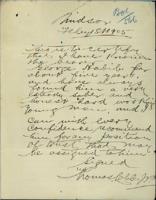 Windsor
This is to certify
that I have known
the bearer
George
for
about five years
and have always
found him a very
sober and
honest hard working
young man and I
can with every
confidence recommend
him for any position
of trust that may
be assigned to him
Signed
Thomas